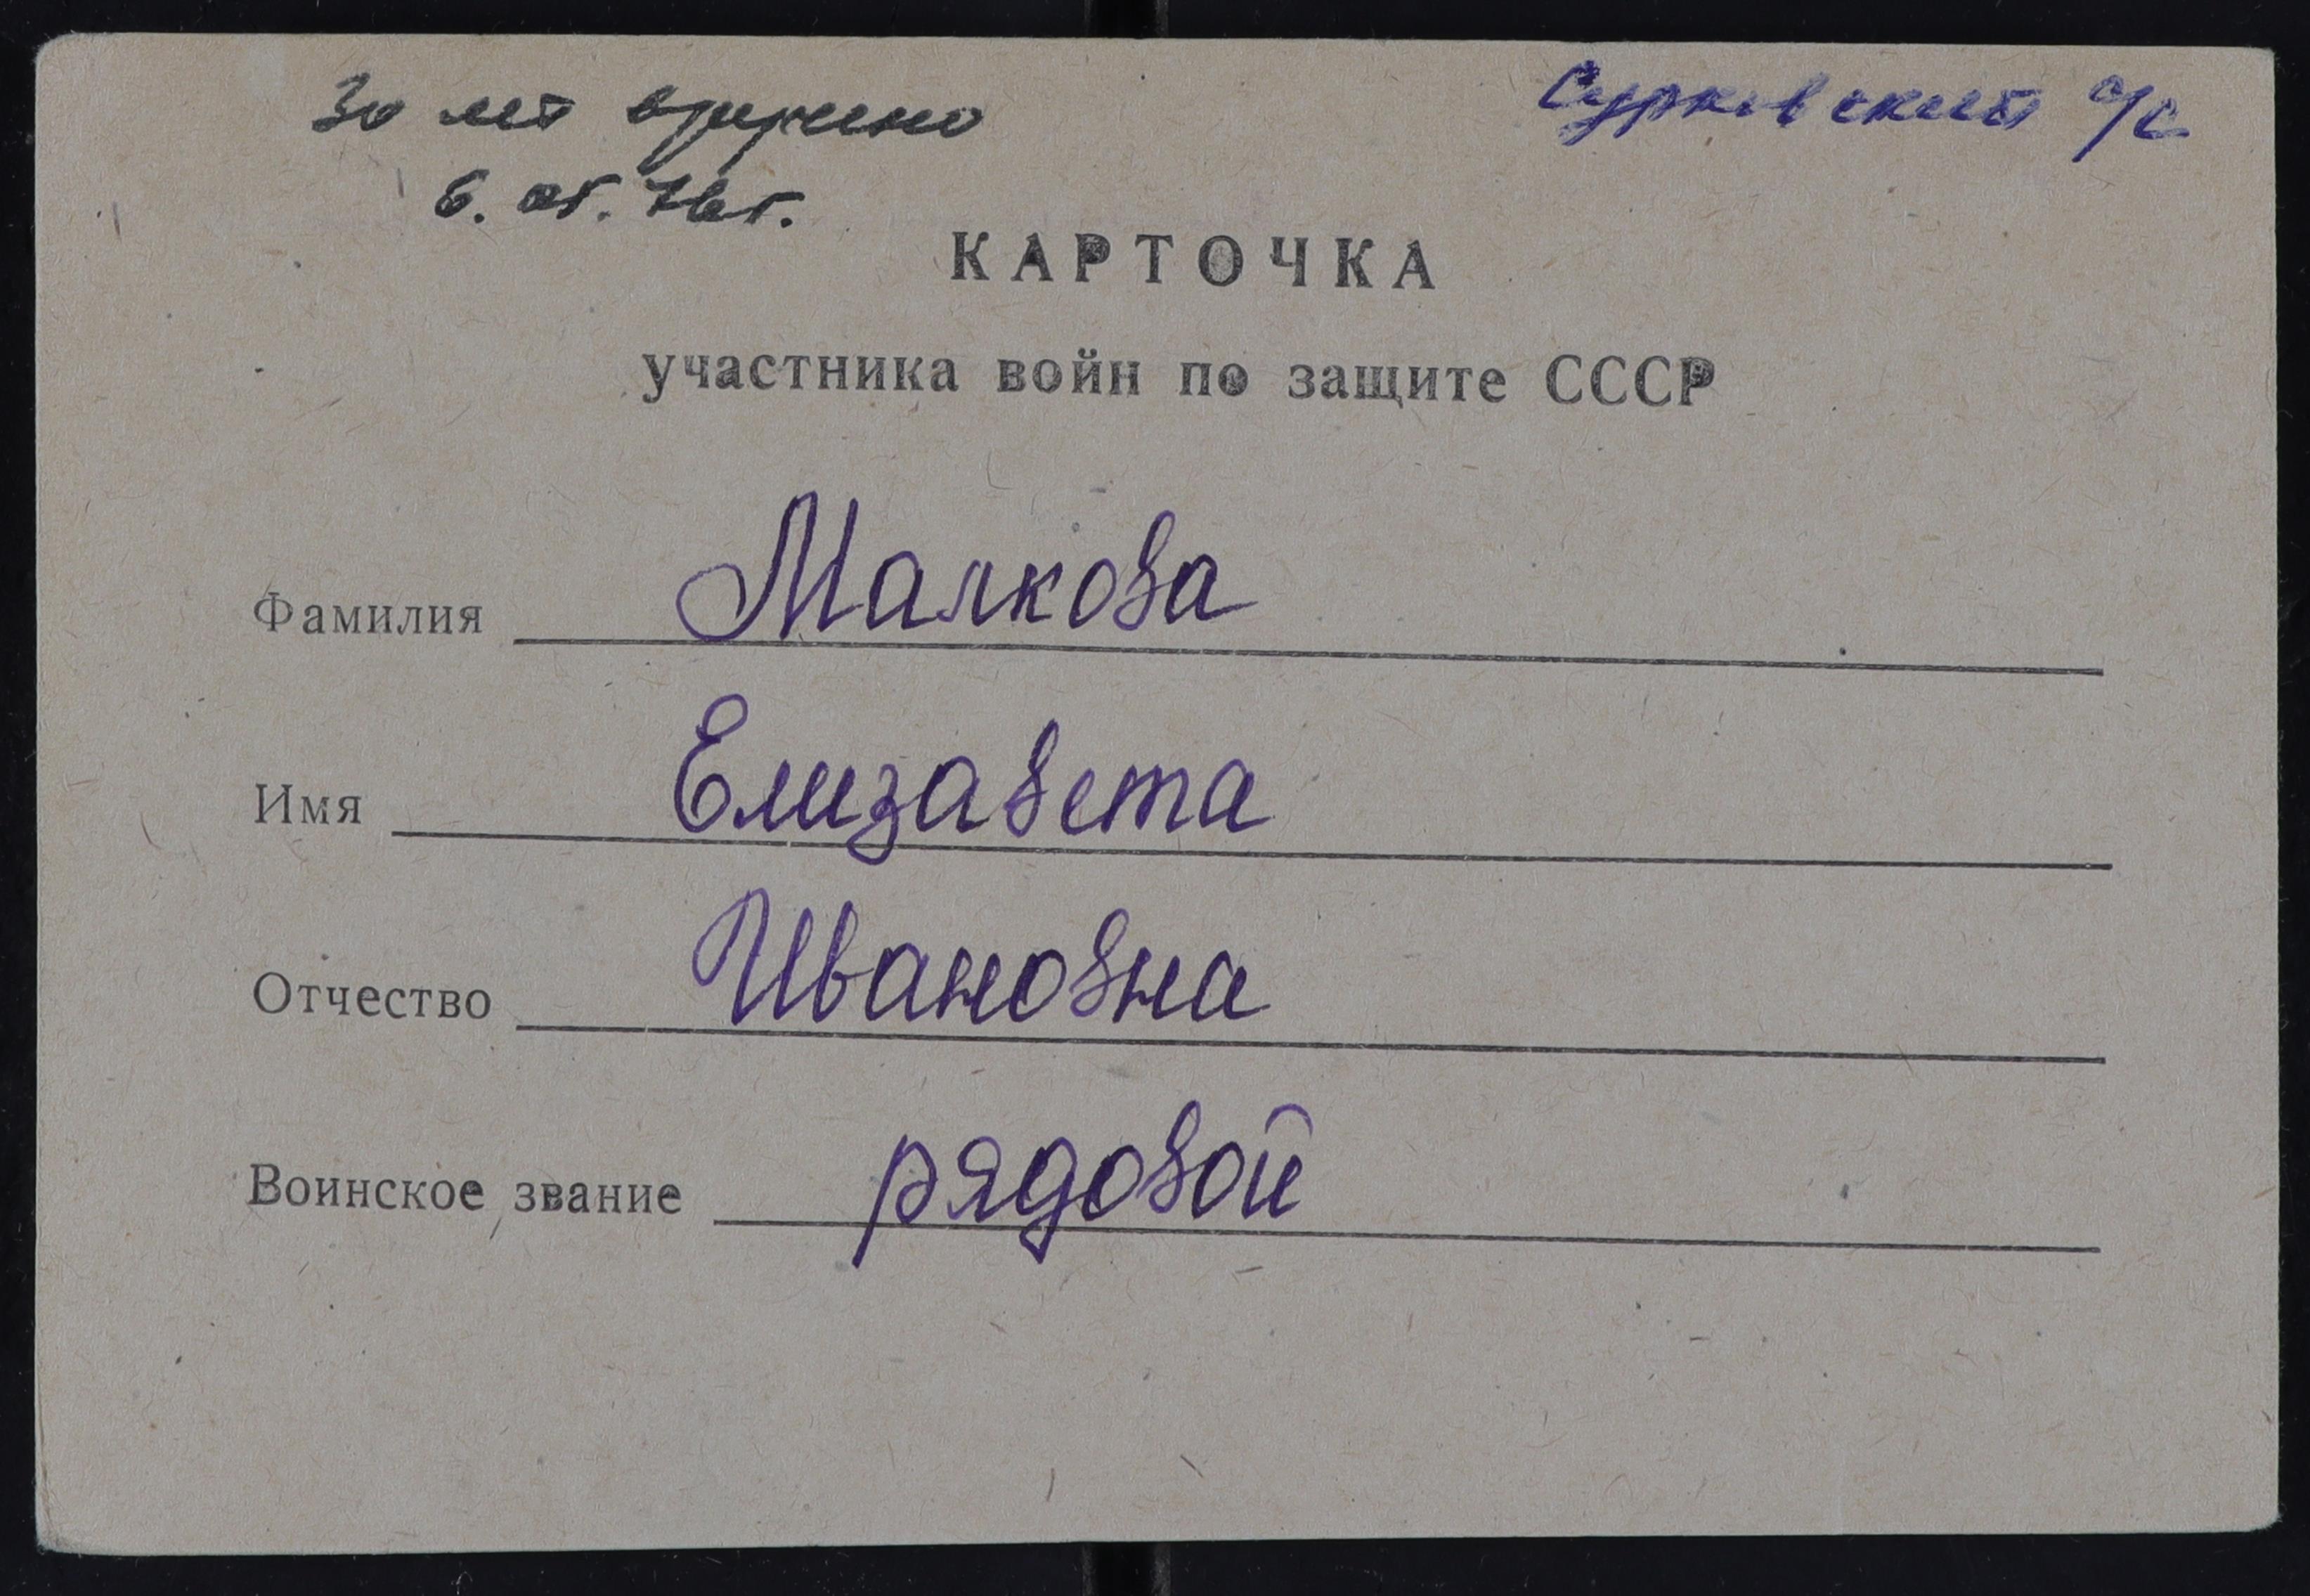 30 лет вручено
Сурковский с/с
6. 05. 76г.
КАРТОЧКА
участника войн по защите СССР
Фамилия Малкова
Имя Елизавета
Отчество Ивановна
Воинское звание рядовой